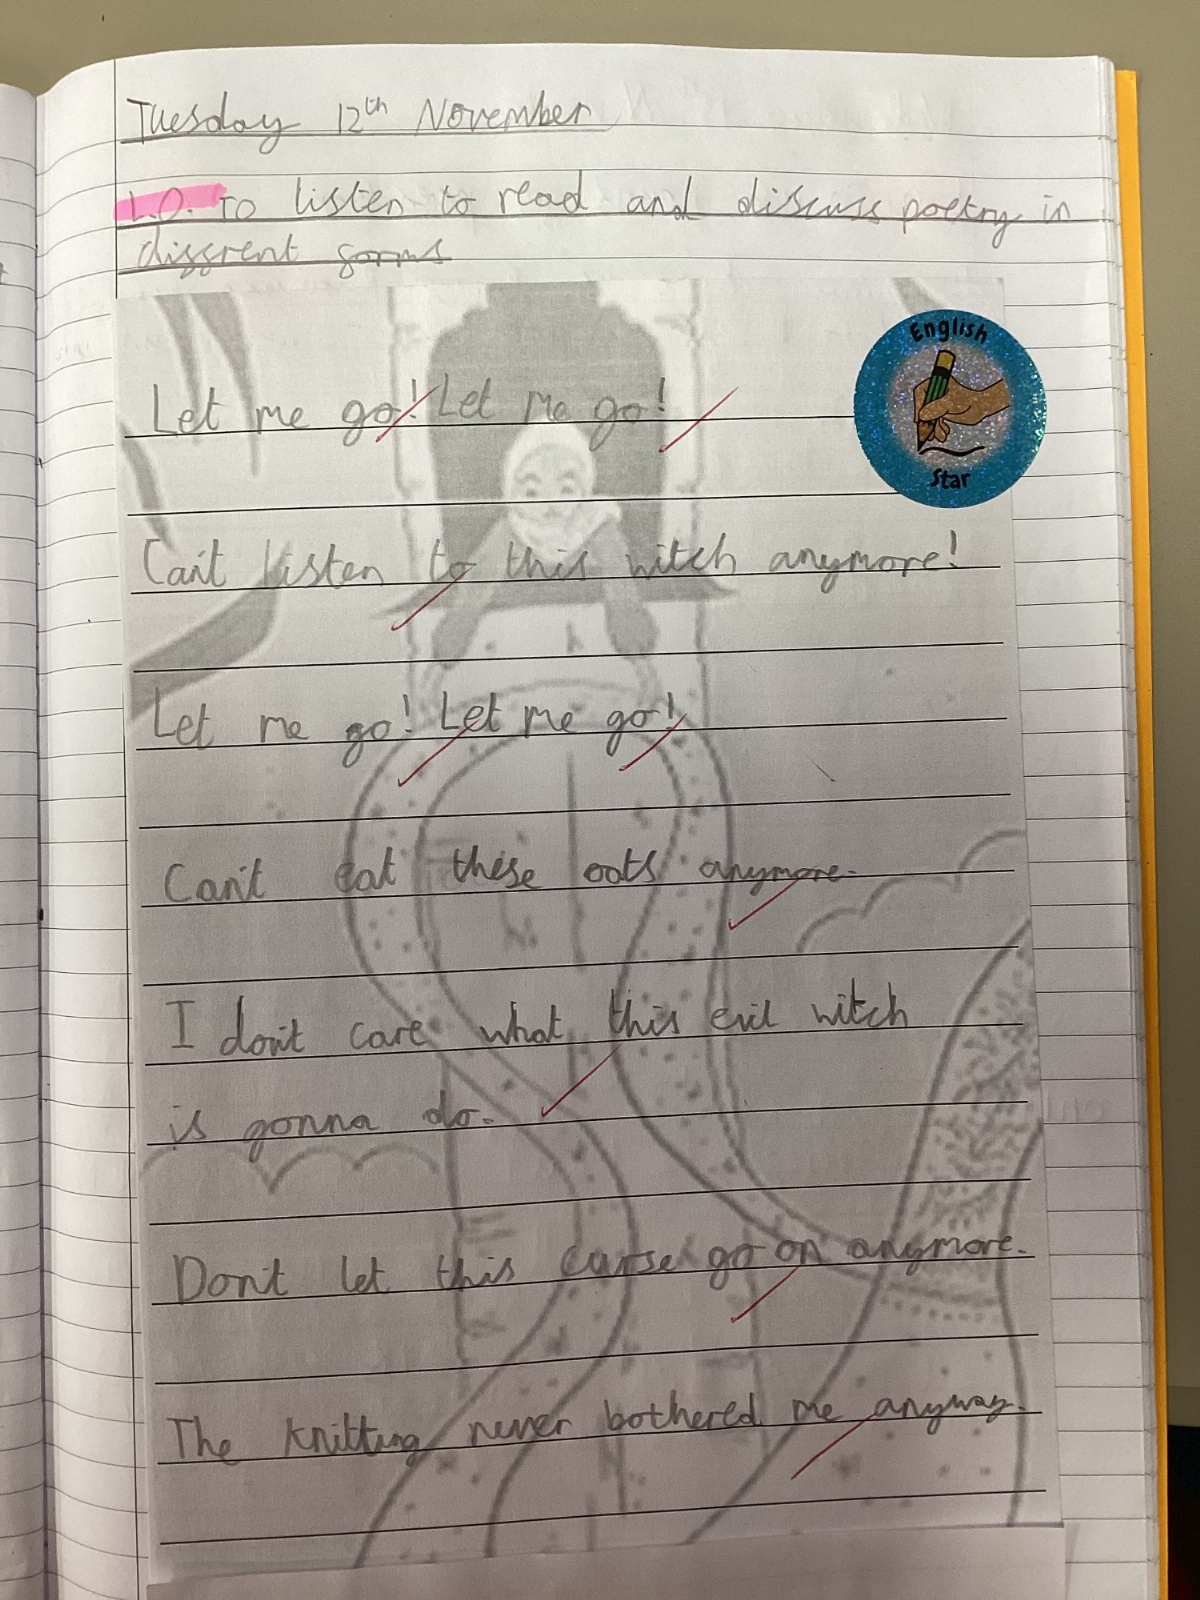 Tuesday 12th November
L.O. To listen to read and discuss poetry in
diffrent forms
English
Star
Let me go! Let me go!
Can't listen to this witch anymore!
Let me go! Let me go!
Can't eat these oats anymore.
I don't care what this evil witch
is gonna do.
Don't let this curse go on anymore.
The knitting never bothered me anyway.